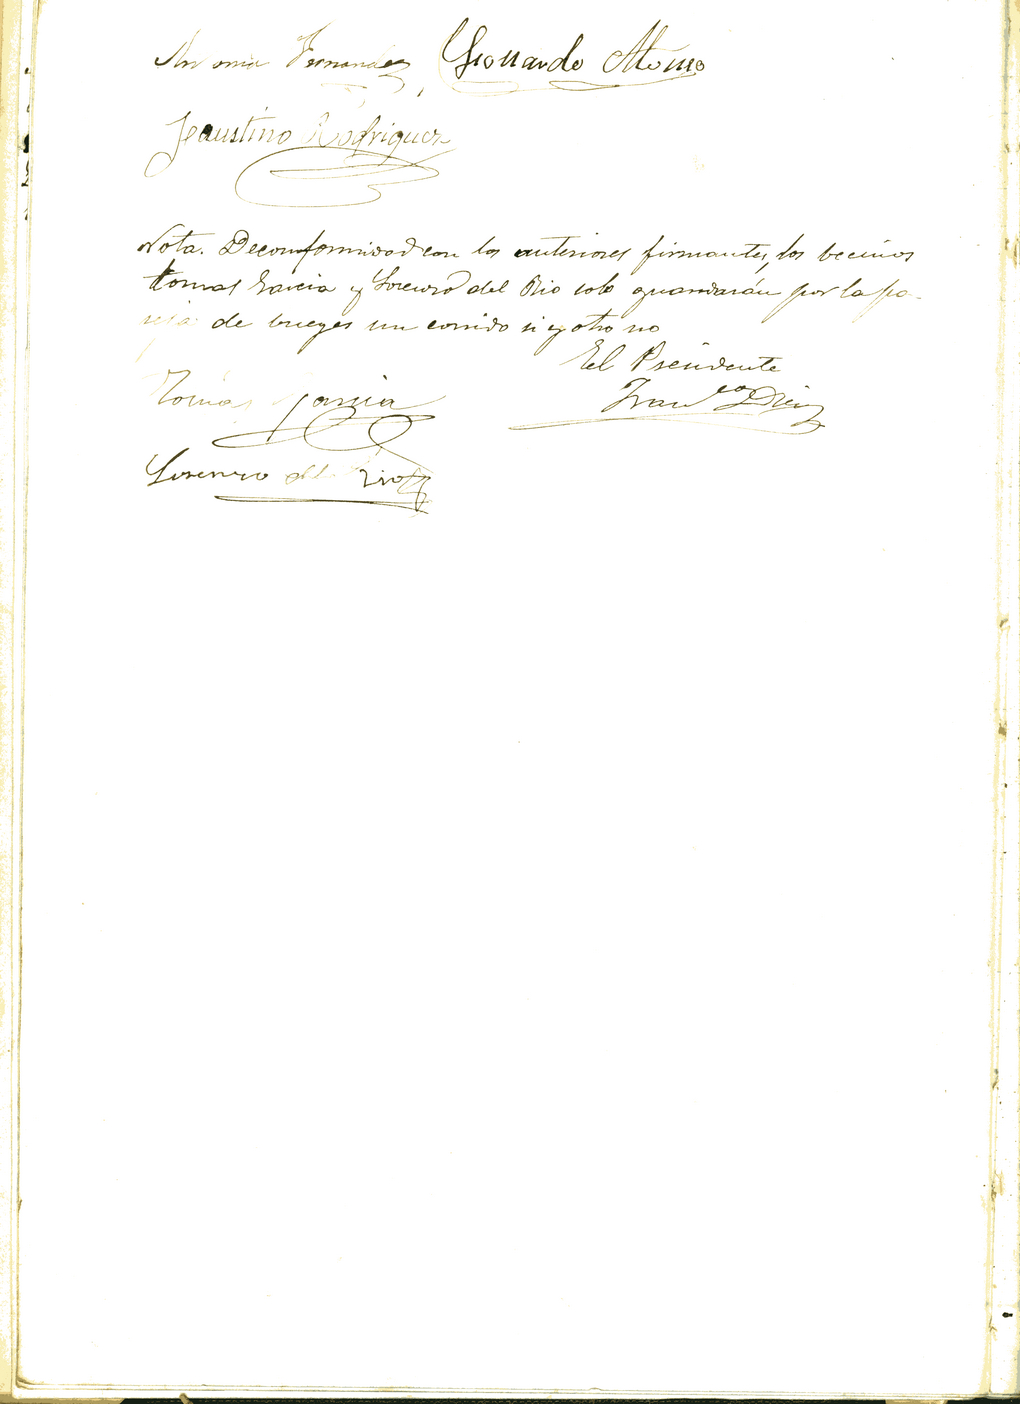 Antonia Fernandez Gerrardo Alonso
Faustino Rodriguez
Nota. De conformidad con los anteriores firmantes, los becinos
tomas Garcia y Lorenzo del Rio solo guardarán por la pa-
reja de bueyes un corrido si y otro no
El Presidente
Tomas Garcia Fran.co Diez
Lorenzo del Rio